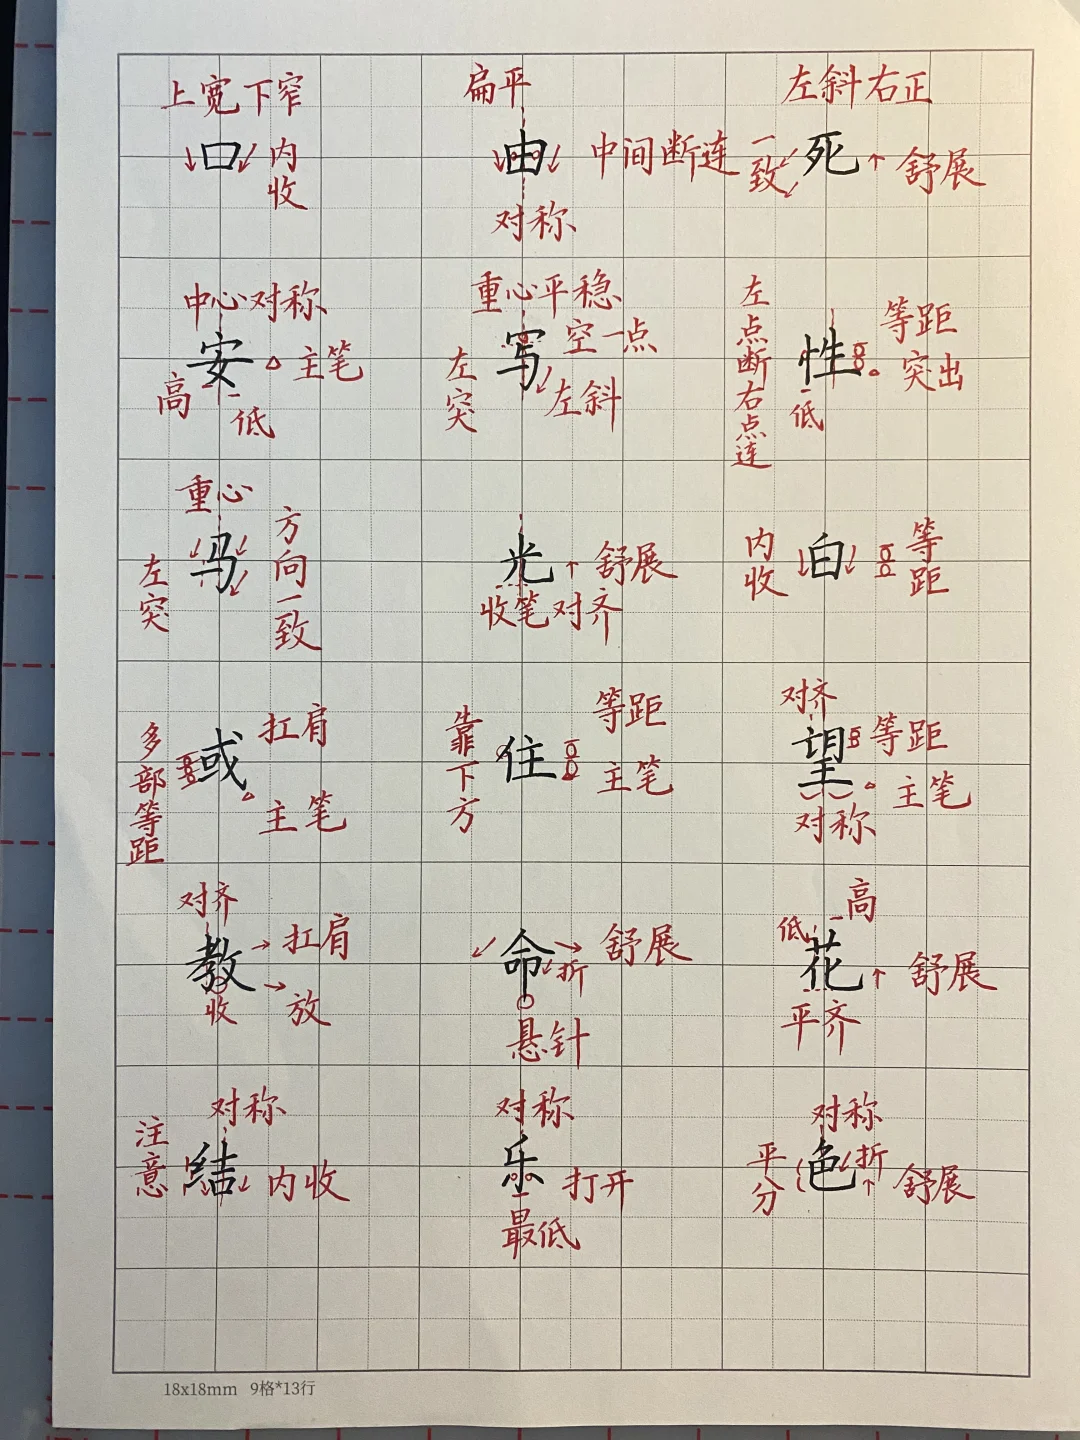 上宽下窄
口
内收
扁平
由
中间断连
对称
左斜右正
一致
死
舒展
中心对称
安
主笔
高
低
重心平稳
写
空一点
左突
左斜
左点断右点连
性
等距
突出
低
重心
马
方向一致
左突
光
舒展
收笔对齐
内收
白
等距
多部等距
或
扛肩
主笔
靠下方
住
等距
主笔
对齐
望
等距
主笔
对称
对齐
教
扛肩
收
放
命
舒展
折
悬针
低
高
花
舒展
平齐
对称
注意
結
内收
对称
乐
打开
最低
对称
平分
色
折
舒展
18x18mm 9格*13行